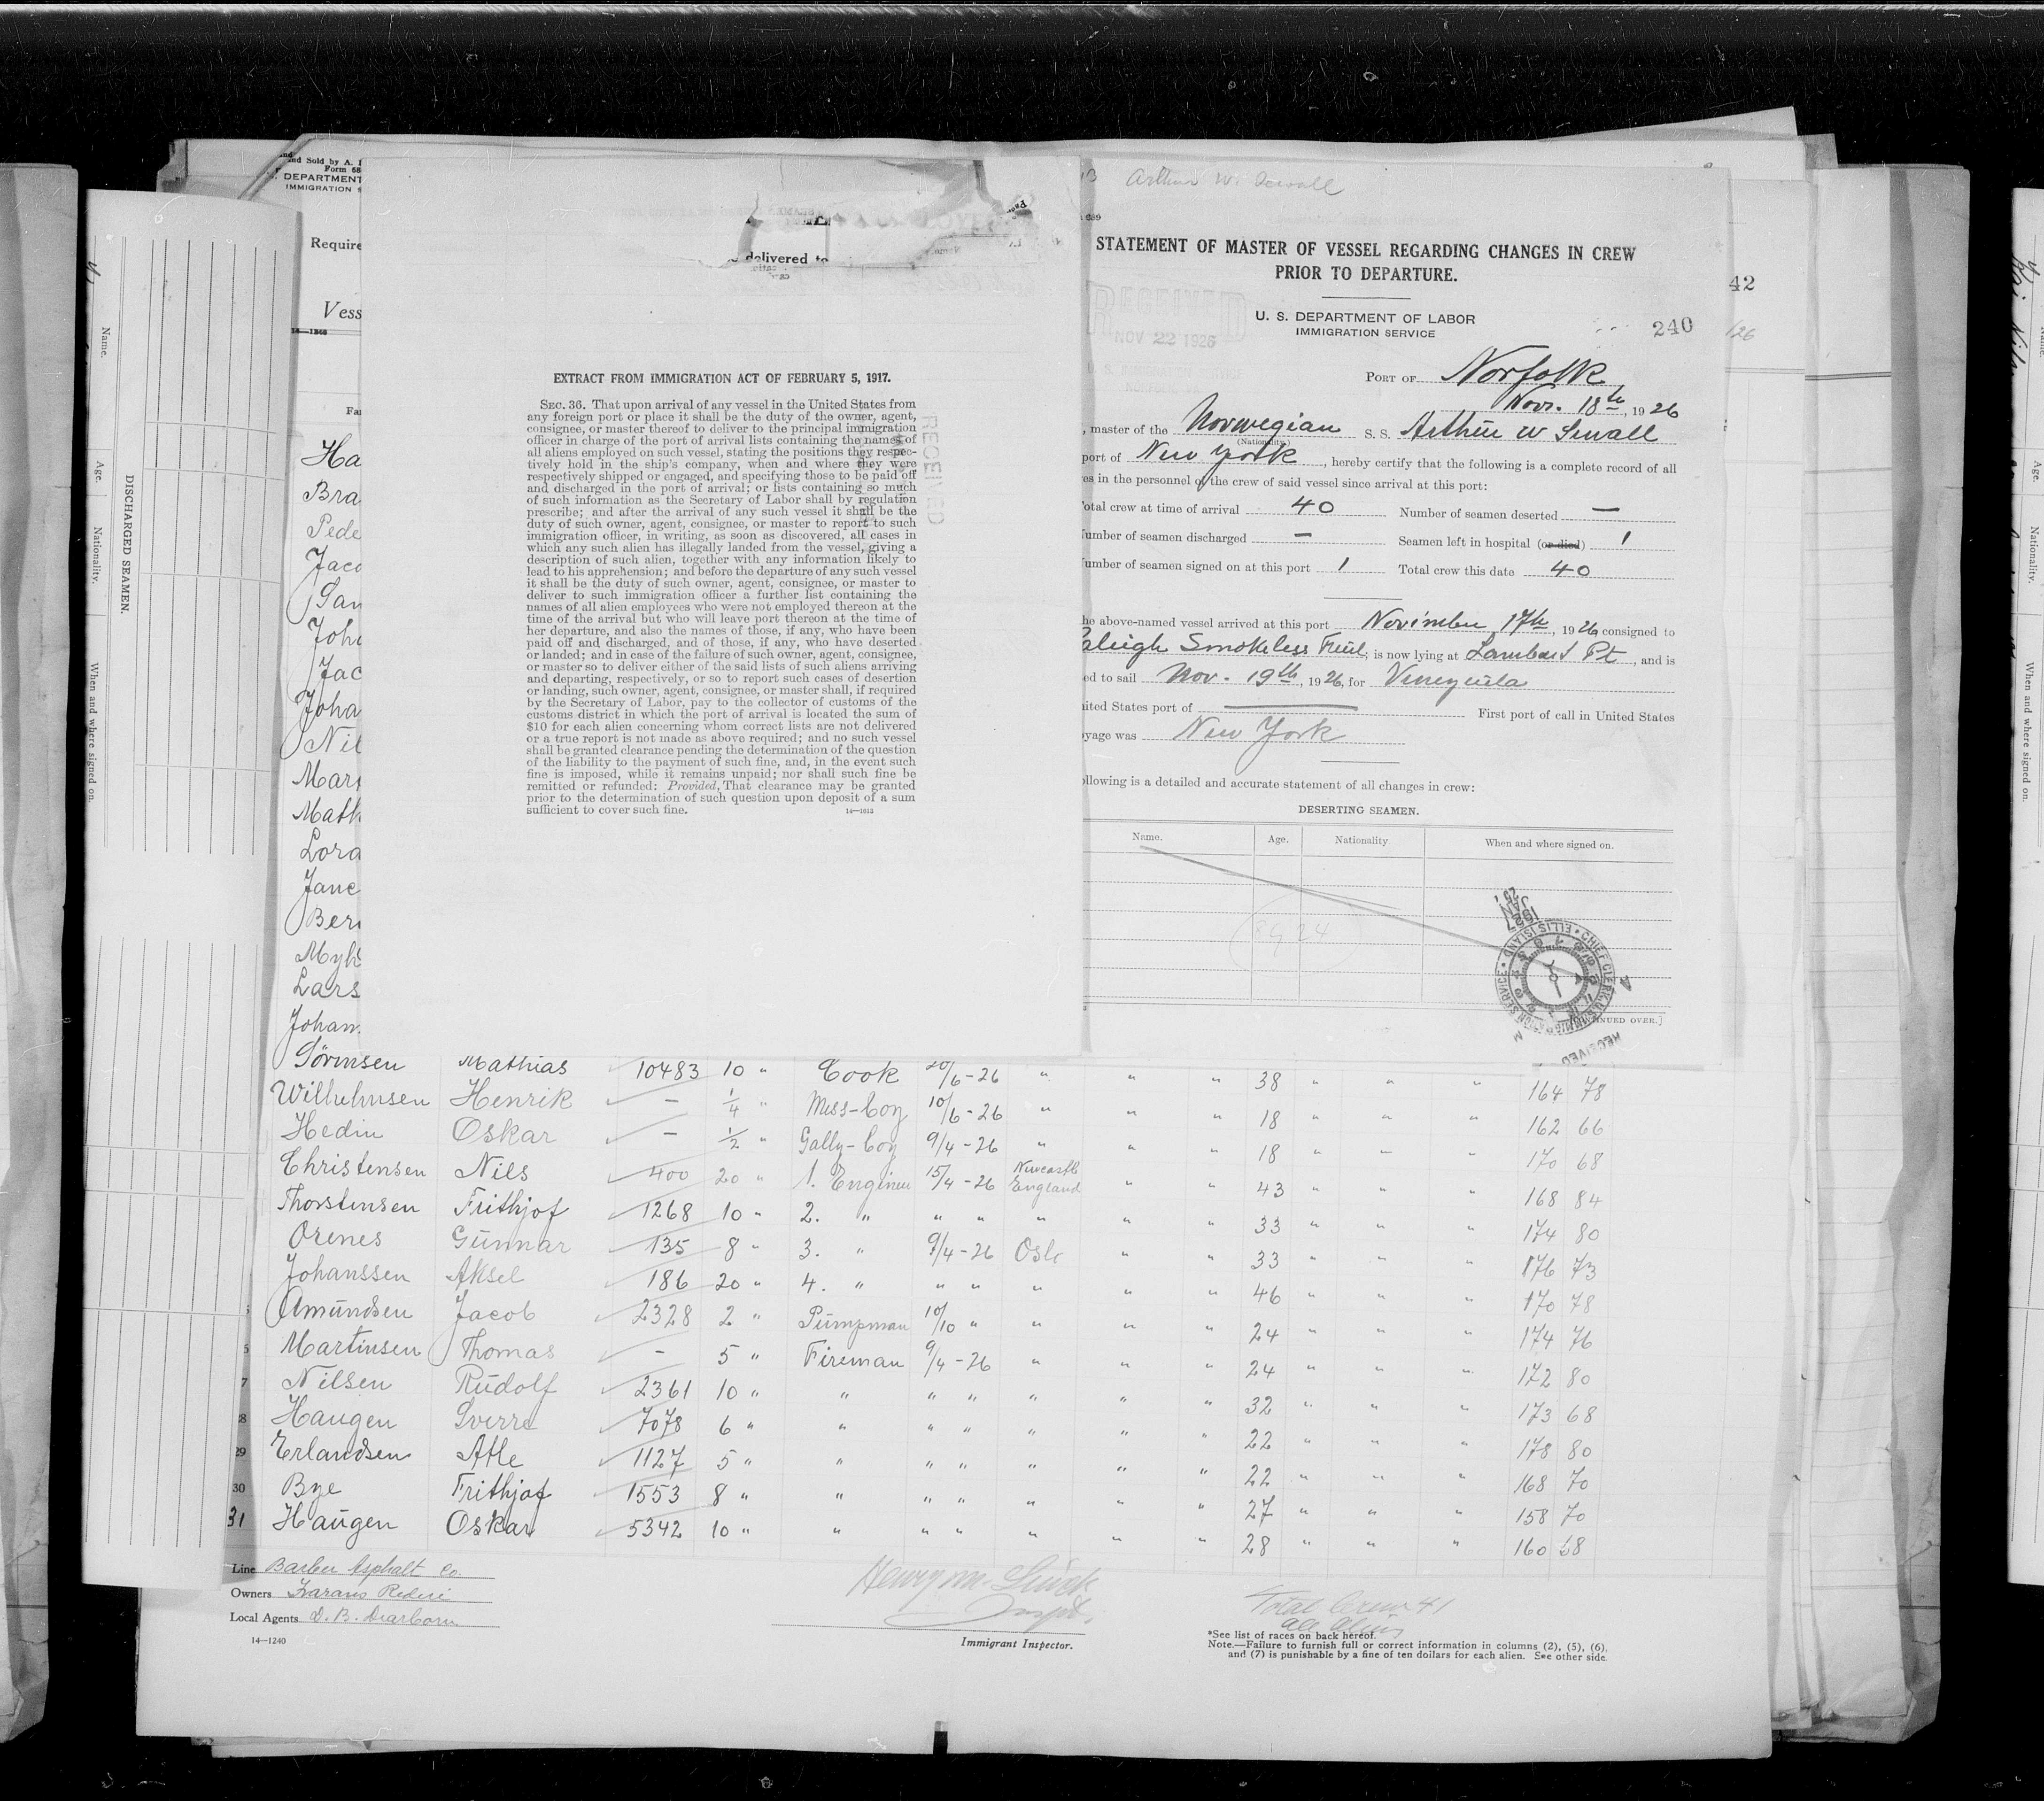 and Sold by A.
Form 68
DEPARTMENT
IMMIGRATION
Require
Vess
14—1240
Ha
Bra
Pede
Jaco
San
Joh
Jac
Joha
Nil
Mar
Math
Lora
Jane
Ber
Myh
Lars
Johan
delivered to
EXTRACT FROM IMMIGRATION ACT OF FEBRUARY 5, 1917.
SEC. 36. That upon arrival of any vessel in the United States from
any foreign port or place it shall be the duty of the owner, agent,
consignee, or master thereof to deliver to the principal immigration
officer in charge of the port of arrival lists containing the names of
all aliens employed on such vessel, stating the positions they respec-
tively hold in the ship's company, when and where they were
respectively shipped or engaged, and specifying those to be paid off
and discharged in the port of arrival; or lists containing so much
of such information as the Secretary of Labor shall by regulation
prescribe; and after the arrival of any such vessel it shall be the
duty of such owner, agent, consignee, or master to report to such
immigration officer, in writing, as soon as discovered, all cases in
which any such alien has illegally landed from the vessel, giving a
description of such alien, together with any information likely to
lead to his apprehension; and before the departure of any such vessel
it shall be the duty of such owner, agent, consignee, or master to
deliver to such immigration officer a further list containing the
names of all alien employees who were not employed thereon at the
time of the arrival but who will leave port thereon at the time of
her departure, and also the names of those, if any, who have been
paid off and discharged, and of those, if any, who have deserted
or landed; and in case of the failure of such owner, agent, consignee,
or master so to deliver either of the said lists of such aliens arriving
and departing, respectively, or so to report such cases of desertion
or landing, such owner, agent, consignee, or master shall, if required
by the Secretary of Labor, pay to the collector of customs of the
customs district in which the port of arrival is located the sum of
$10 for each alien concerning whom correct lists are not delivered
or a true report is not made as above required; and no such vessel
shall be granted clearance pending the determination of the question
of the liability to the payment of such fine, and, in the event such
fine is imposed, while it remains unpaid; nor shall such fine be
remitted or refunded: Provided, That clearance may be granted
prior to the determination of such question upon deposit of a sum
sufficient to cover such fine.
14—1012
RECEIVED
Arthur W. Sewall
689
STATEMENT OF MASTER OF VESSEL REGARDING CHANGES IN CREW
PRIOR TO DEPARTURE.
U. S. DEPARTMENT OF LABOR
IMMIGRATION SERVICE
RECEIVED
NOV 22 1926
240
42
126
PORT OF Norfolk,
Nov. 18th, 1926
, master of the Norwegian S. S. Arthur W Sewall
(Nationality)
port of New York, hereby certify that the following is a complete record of all
es in the personnel of the crew of said vessel since arrival at this port:
Total crew at time of arrival 40 Number of seamen deserted —
Number of seamen discharged — Seamen left in hospital (or died) 1
Number of seamen signed on at this port 1 Total crew this date 40
he above-named vessel arrived at this port November 17th, 1926 consigned to
aleigh Smokeless Fuel; is now lying at Lambert Pt, and is
ed to sail Nov. 19th, 1926, for Venezuela
nited States port of — First port of call in United States
oyage was New York
ollowing is a detailed and accurate statement of all changes in crew:
DESERTING SEAMEN.
Name. Age. Nationality When and where signed on.
CHIEF CLERK U.S. IMMIGRATION SERVICE • ELLIS ISLAND •
RECEIVED
CONTINUED OVER.]
Sörensen Mathias 10483 10 " Cook 20/6-26 " " " 38 " " " 164 78
Wilhelmsen Henrik — 1/4 " Mess-boy 10/6-26 " " " 18 " " " 162 66
Hedin Oskar — 1/2 " Gally-boy 9/4-26 " " " 18 " " " 170 68
Christensen Nils 400 20 " 1. Engineer 15/4-26 Newcastle England " " 43 " " " 168 84
Thorstensen Frithjof 1268 10 " 2. " " " " " " 33 " " " 174 80
Orenes Gunnar 135 8 " 3. " 9/4-26 Oslo " " 33 " " " 176 73
Johanssen Aksel 186 20 " 4. " " " " " " 46 " " " 170 78
Amundsen Jacob 2328 2 " Pumpman 10/10 " " " " 24 " " " 174 76
Martinsen Thomas — 5 " Fireman 9/4-26 " " " 24 " " " 172 80
7 Nilsen Rudolf 2361 10 " " " " " " " 32 " " " 173 68
28 Haugen Sverre 7078 6 " " " " " " " 22 " " " 178 80
29 Erlandsen Atle 1127 5 " " " " " " " 22 " " " 168 70
30 Bye Frithjof 1553 8 " " " " " " " 27 " " " 158 70
31 Haugen Oskar 5342 10 " " " " " " " 28 " " " 160 68
Line Barber Asphalt Co.
Owners Rederi
Local Agents D. B. Dearborn
14—1240
Immigrant Inspector.
Total Crew 41
all aliens
*See list of races on back hereof.
Note.—Failure to furnish full or correct information in columns (2), (5), (6),
and (7) is punishable by a fine of ten dollars for each alien. See other side.
DISCHARGED SEAMEN.
Name. Age. Nationality. When and where signed on.
Age. Nationality. When and where signed on.